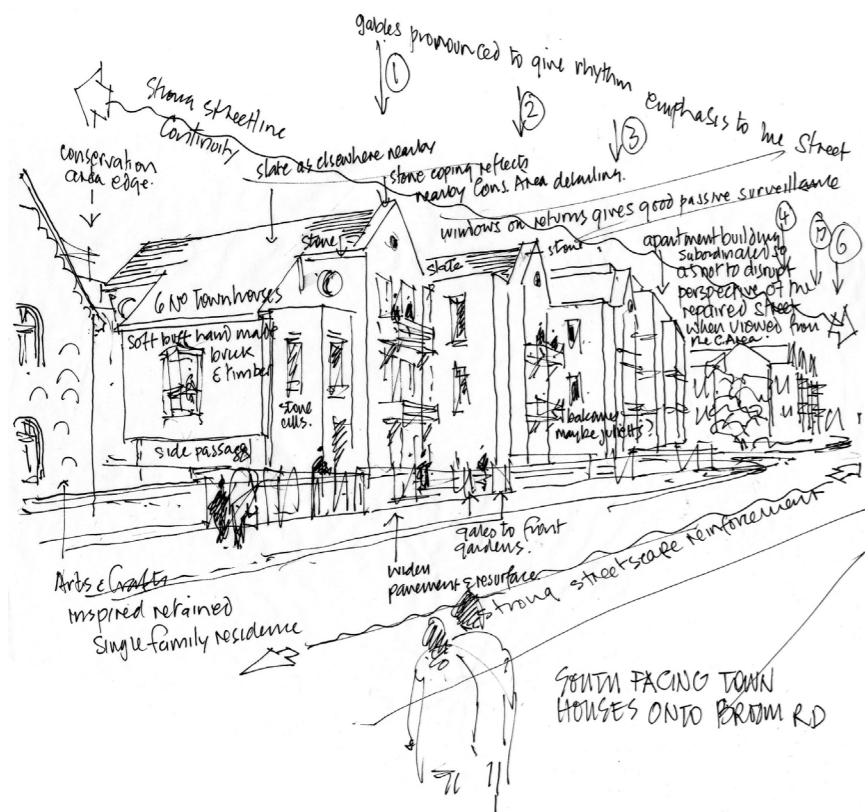 gables pronounced to give rhythm emphasis to the Street
1
2
3
4
5
6
Strong streetline
Continuity
conservation
area edge.
slate as elsewhere nearby
stone coping reflects
nearby Cons. Area detailing.
windows on returns gives good passive surveillance
apartment building
subordinated so
as not to disrupt
perspective of the
repaired street
when viewed from
the C. Area.
stone
slate
stone
6 No Townhouses
soft buff hand made
brick
& timber
stone
cills.
side passage
balconies
maybe juliets?
gates to front
gardens.
widen
pavement & resurface
strong streetscape reinforcement
Arts & Crafts
inspired retained
single family residence
SOUTH FACING TOWN
HOUSES ONTO BROOM RD